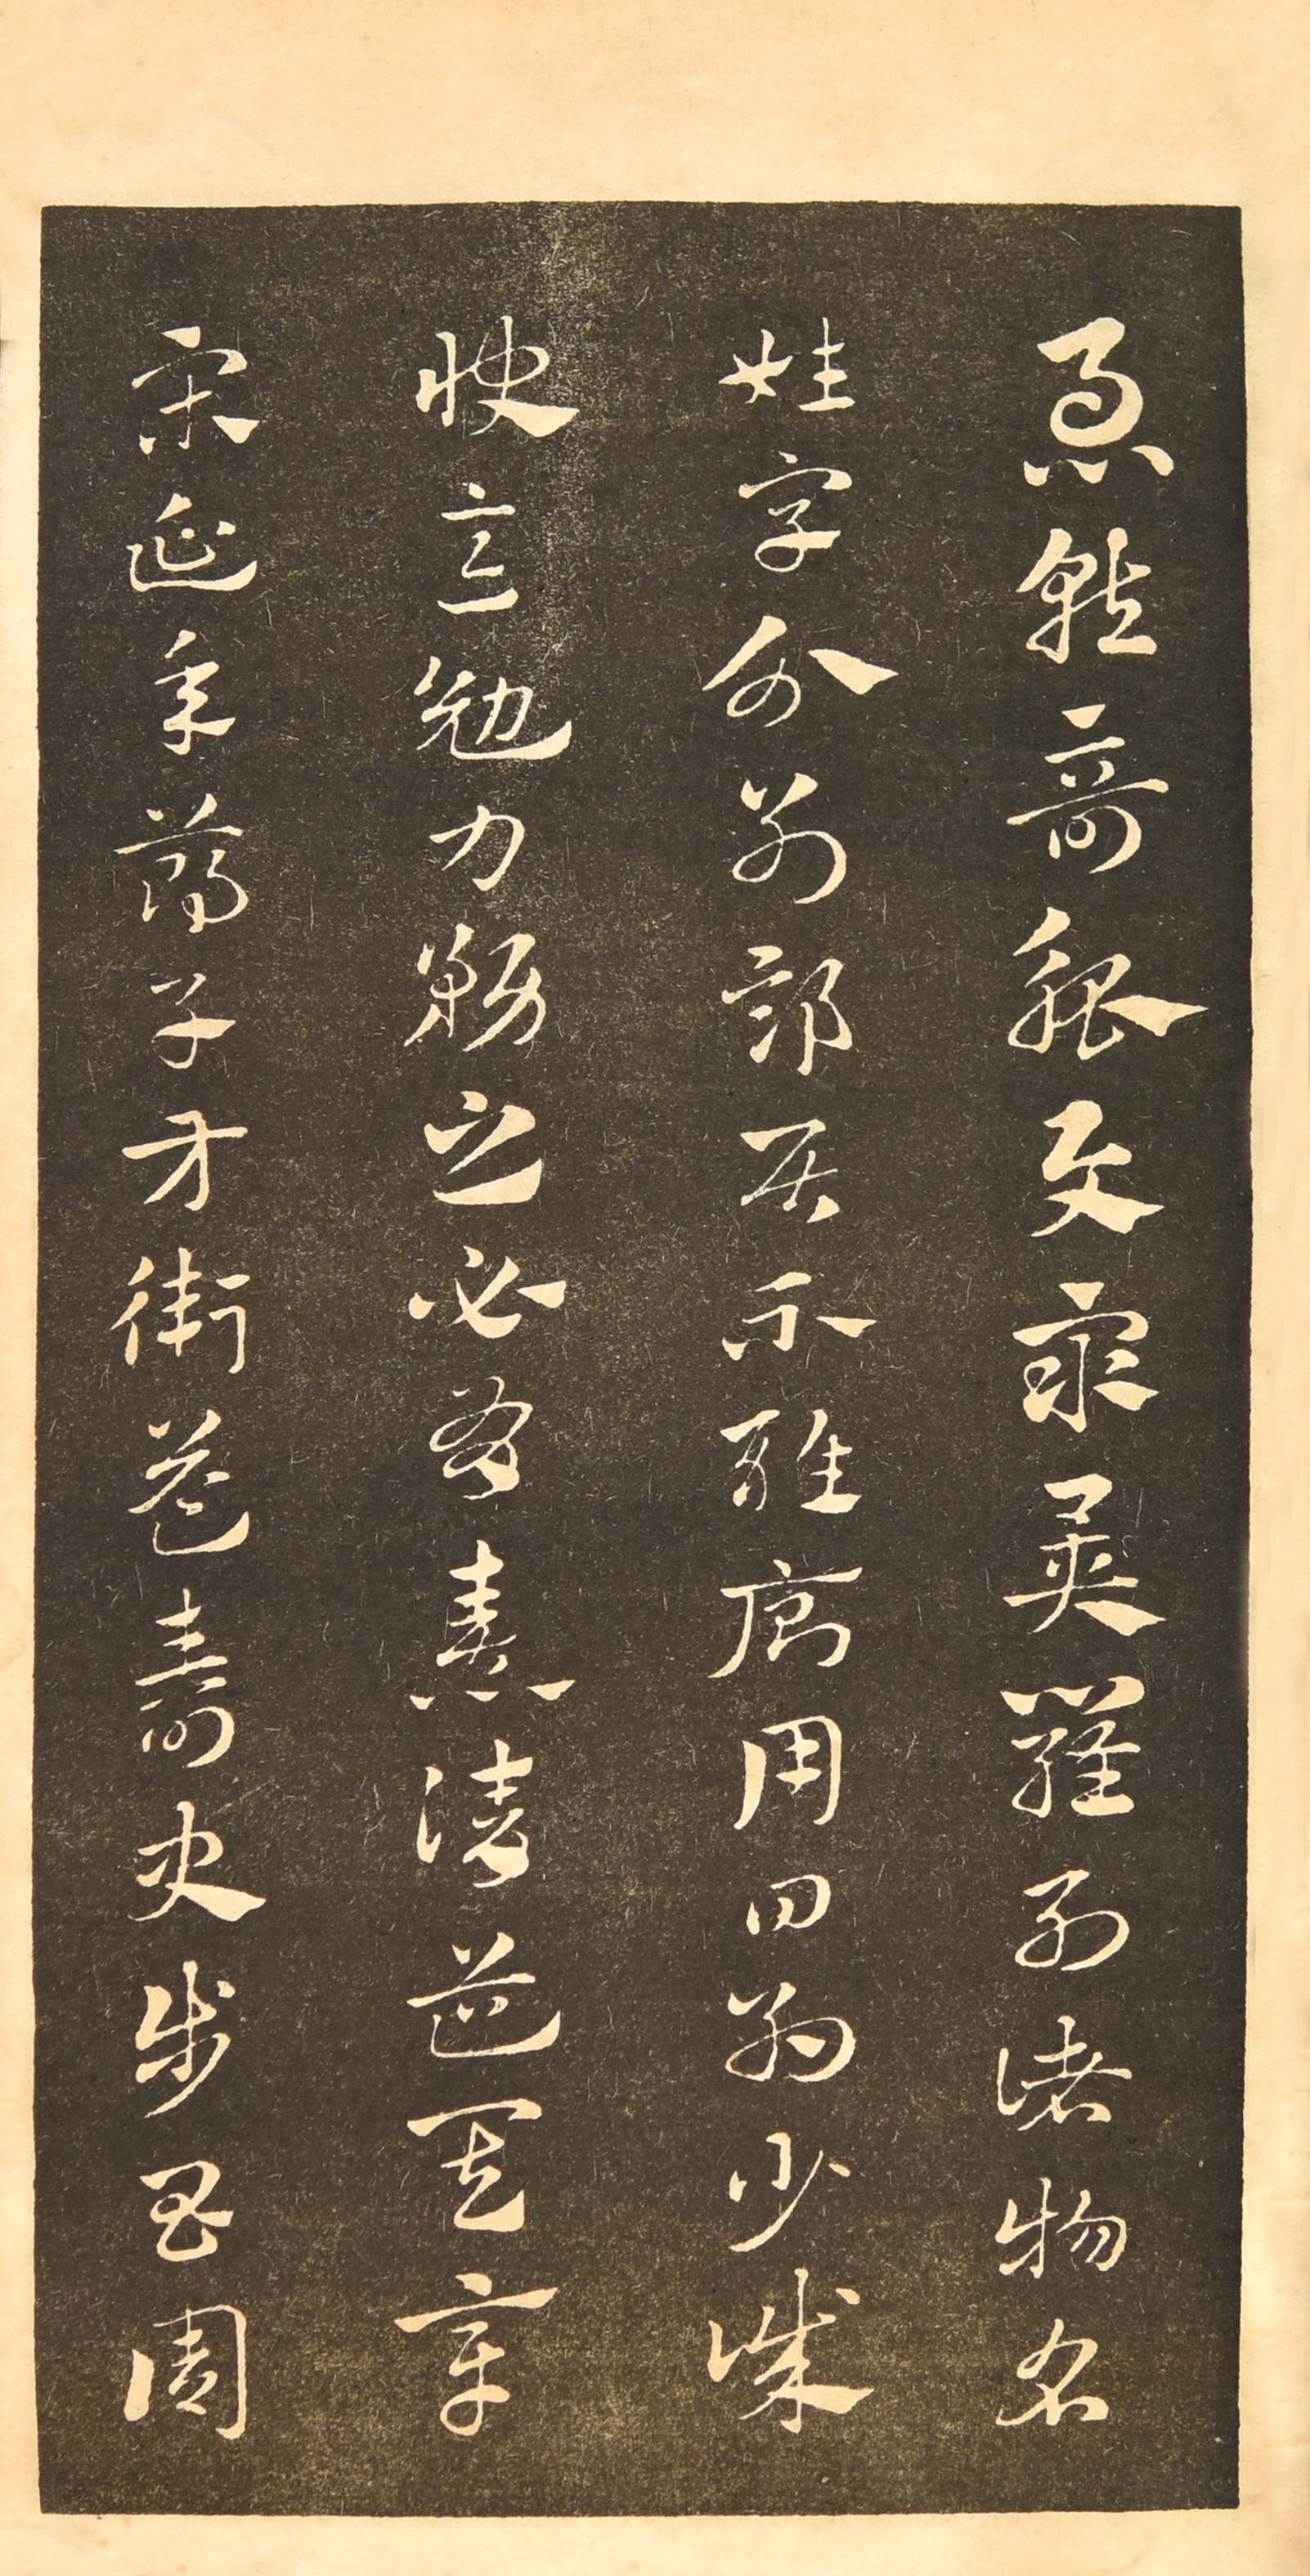 急就奇觚與衆異羅列諸物名
姓字分別部居不雜廁用日約少誠
快意勉力務之必有憙請道其章
宋延年鄭子方衛益壽史步昌周